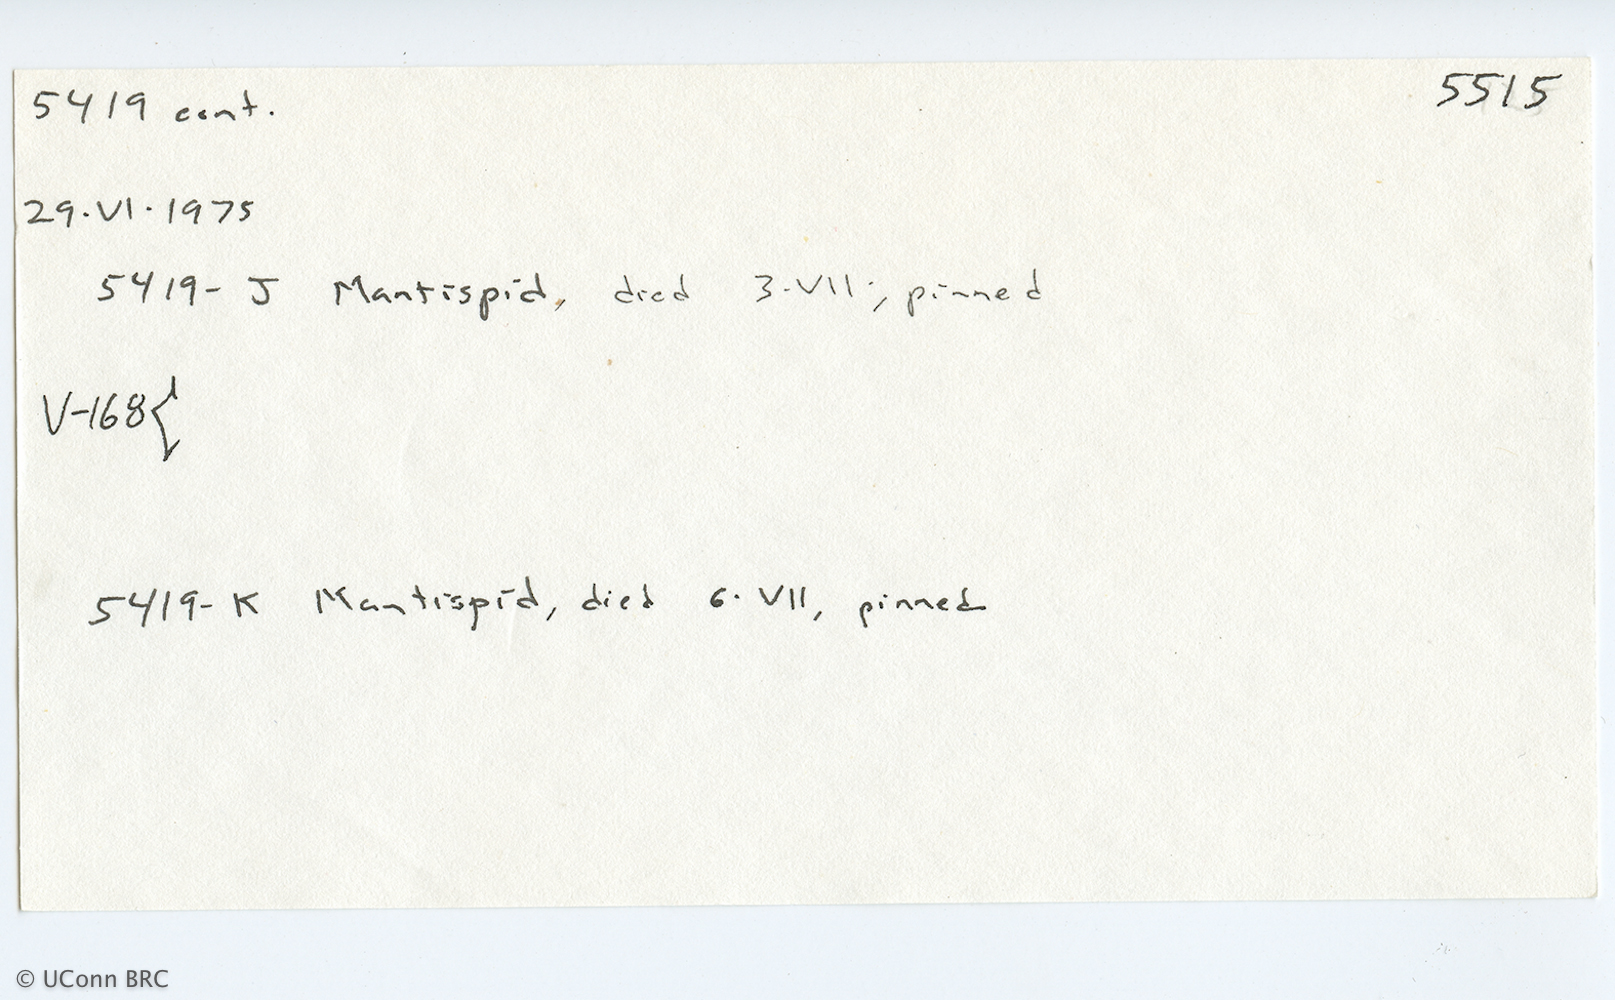 5419 cont. 5515
29·VI·1975
5419-J Mantispid, died 3·VII·, pinned
V-168{
5419-K Mantispid, died 6·VII, pinned
© UConn BRC